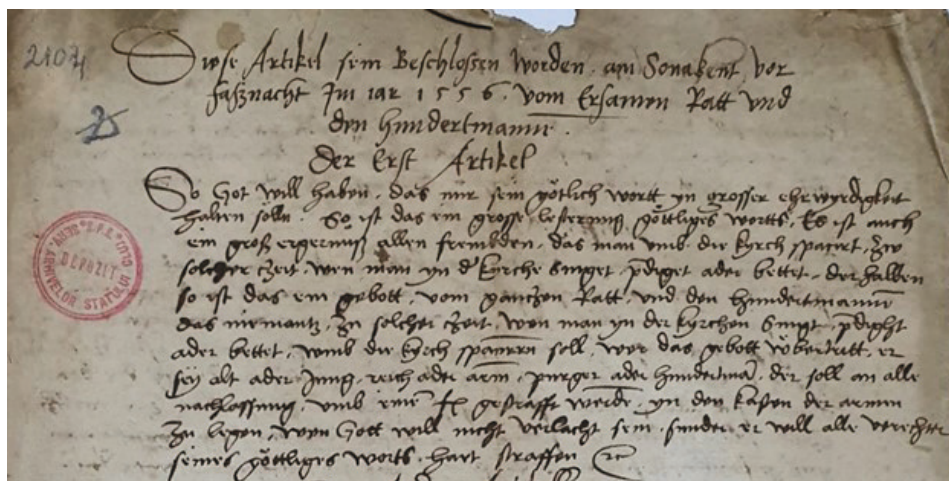 2104
Diese Artikel sein Beschlossen worden, am Sonabent vor
faßnacht Im iar 1556. vom Ersamen Ratt vnd
den hundertmannn.
Der Erst Artikel
So Got will haben, das mir sein götlich wortt yn grosser ehrwyrdigkeit
halten solln. So ist das ein grosse lesterung göttliges wortts, Es ist auch
ein groß ergernuß allen frembden, das man vmb die kyrch spacirt, zw
solcher czeit, wen man yn d' kyrche singet, p̄diget ader bettet, derhalben
so ist das ein gebott, vom ganczen Ratt, vnd den hundertmannn
das niemantz, zu solcher czeit, wen man yn der kyrchen singt, p̄dight
ader bettet, vmb die kyrch spacirn soll, wer das gebott vbertritt, er
sey alt ader Jung, reich ader arm, purger ader hundertmā, der soll an alle
nachlossung, vmb eine fl gestrafft werde, yn den kasten der armen
zu legen, wen Gott will nicht verlacht sein, sunder er will alle verechter
seines göttliges worts, hart straffen
DEPOZIT
ARHIVELOR STATULUI